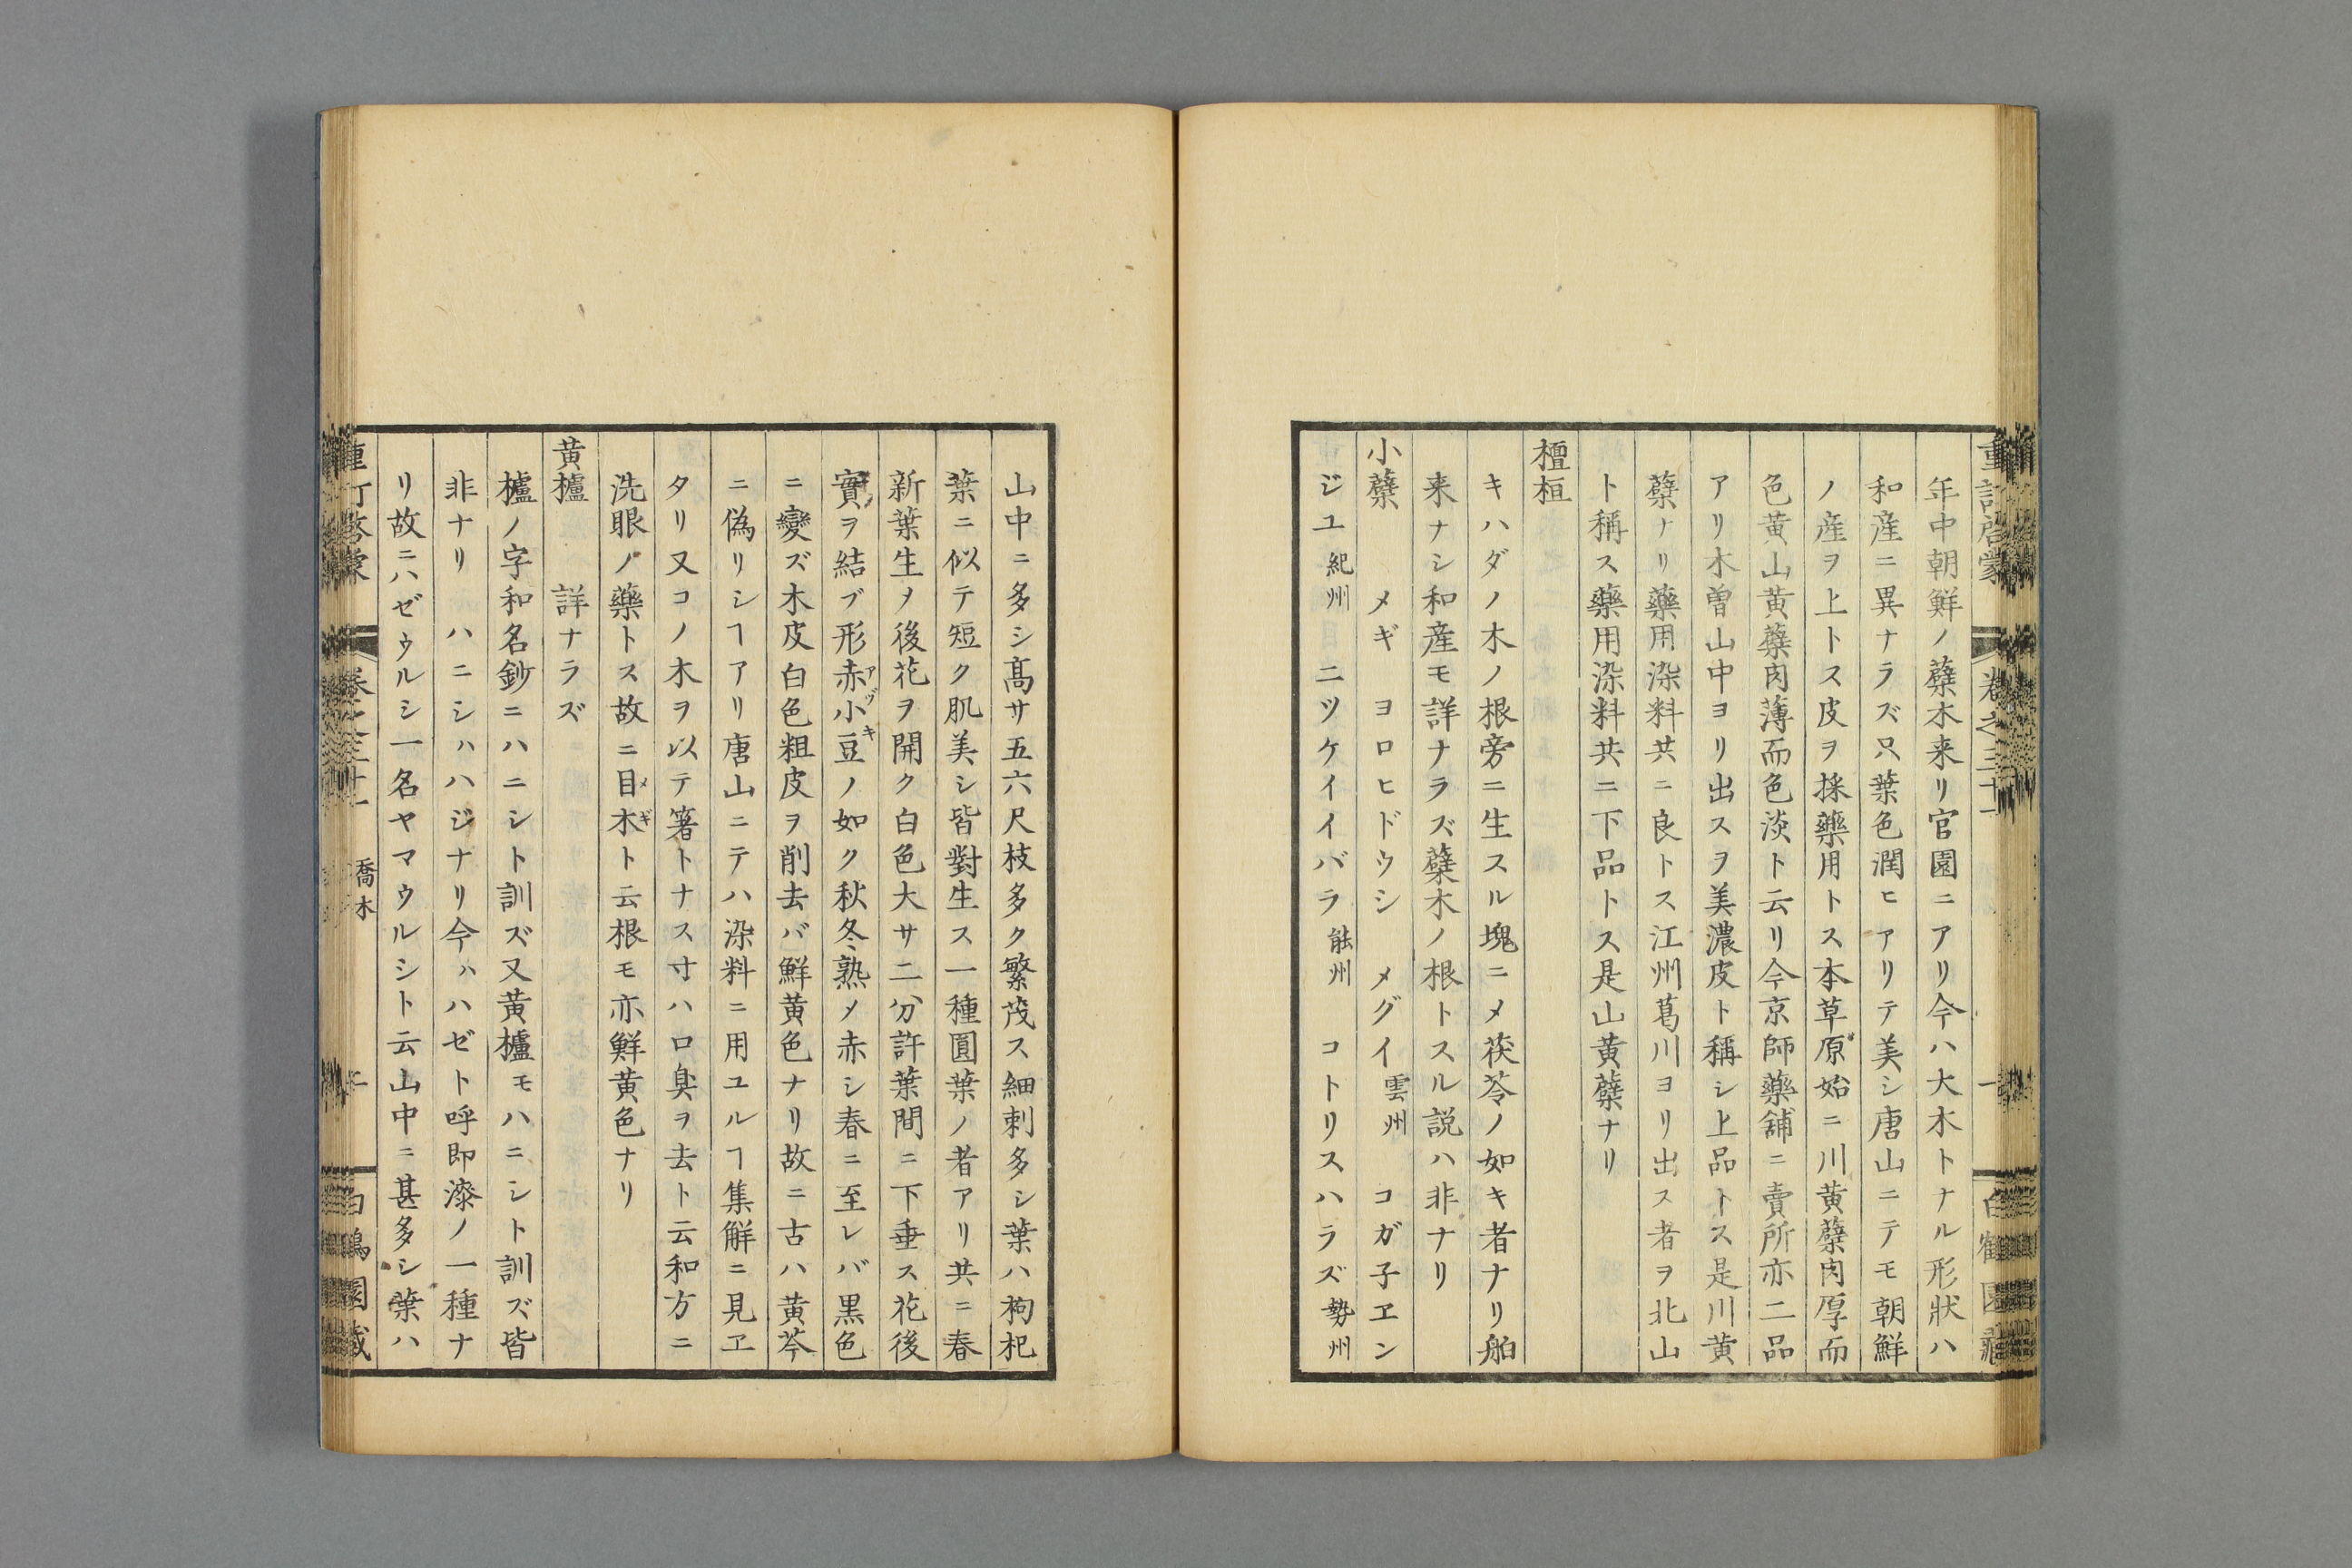 重訂啓蒙 卷之三十一 一 白鶴園藏
年中朝鮮ノ蘗木来リ官園ニアリ今ハ大木トナル形狀ハ
和産ニ異ナラズ只葉色潤ヒアリテ美シ唐山ニテモ朝鮮
ノ産ヲ上トス皮ヲ採藥用トス本草原始ニ川黄蘗肉厚而
色黄山黄蘗肉薄而色淡ト云リ今京師藥舖ニ賣所亦二品
アリ木曽山中ヨリ出スヲ美濃皮ト稱シ上品トス是川黄
蘗ナリ藥用染料共ニ良トス江州葛川ヨリ出ス者ヲ北山
ト稱ス藥用染料共ニ下品トス是山黄蘗ナリ
檀桓
キハダノ木ノ根旁ニ生スル塊ニメ茯苓ノ如キ者ナリ舶
来ナシ和産モ詳ナラズ蘗木ノ根トスル説ハ非ナリ
小蘗 メギ ヨロヒドウシ メグイ雲州 コガ子ヱン
ジユ紀州 ニツケイイバラ能州 コトリスハラズ勢州
山中ニ多シ髙サ五六尺枝多ク繁茂ス細刺多シ葉ハ枸杞
葉ニ似テ短ク肌美シ皆對生ス一種圓葉ノ者アリ共ニ春
新葉生メ後花ヲ開ク白色大サ二分許葉間ニ下垂ス花後
實ヲ結ブ形赤小豆ノ如ク秋冬熟メ赤シ春ニ至レバ黒色
ニ變ズ木皮白色粗皮ヲ削去バ鮮黄色ナリ故ニ古ハ黄芩
ニ偽リシヿアリ唐山ニテハ染料ニ用ユルヿ集觧ニ見ヱ
タリ又コノ木ヲ以テ箸トナス寸ハ口臭ヲ去ト云和方ニ
洗眼ノ藥トス故ニ目木ト云根モ亦鮮黄色ナリ
黄櫨 詳ナラズ
櫨ノ字和名鈔ニハニシト訓ズ又黄櫨モハニシト訓ズ皆
非ナリ ハニシハハジナリ今ハハゼト呼即漆ノ一種ナ
リ故ニハゼウルシ一名ヤマウルシト云山中ニ甚多シ葉ハ
重訂啓蒙 卷之三十一 喬木 白鶴園藏